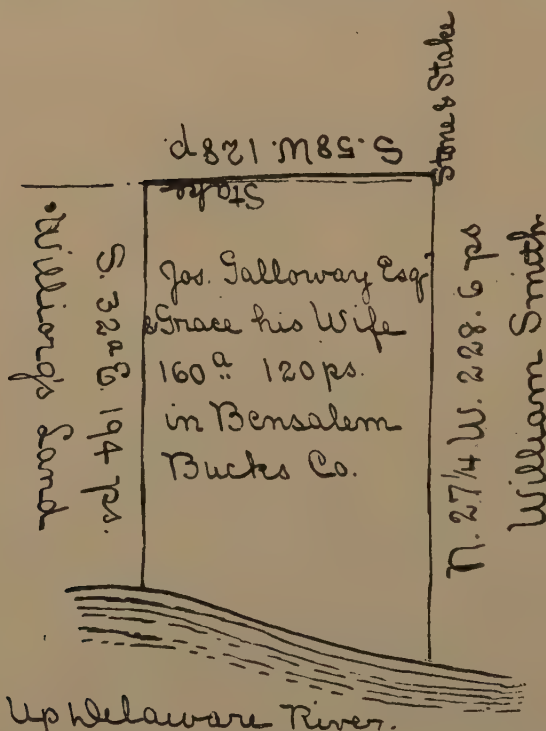 Stone & Stake
S. 58 W. 128 p.
Stake
Willing's Land
S. 32ª E. 194 ps.
Jos. Galloway Esqr
& Grace his Wife
160a 120 ps.
in Bensalem
Bucks Co.
N. 27¼ W. 228.6 ps
William Smith
Up Delaware River.